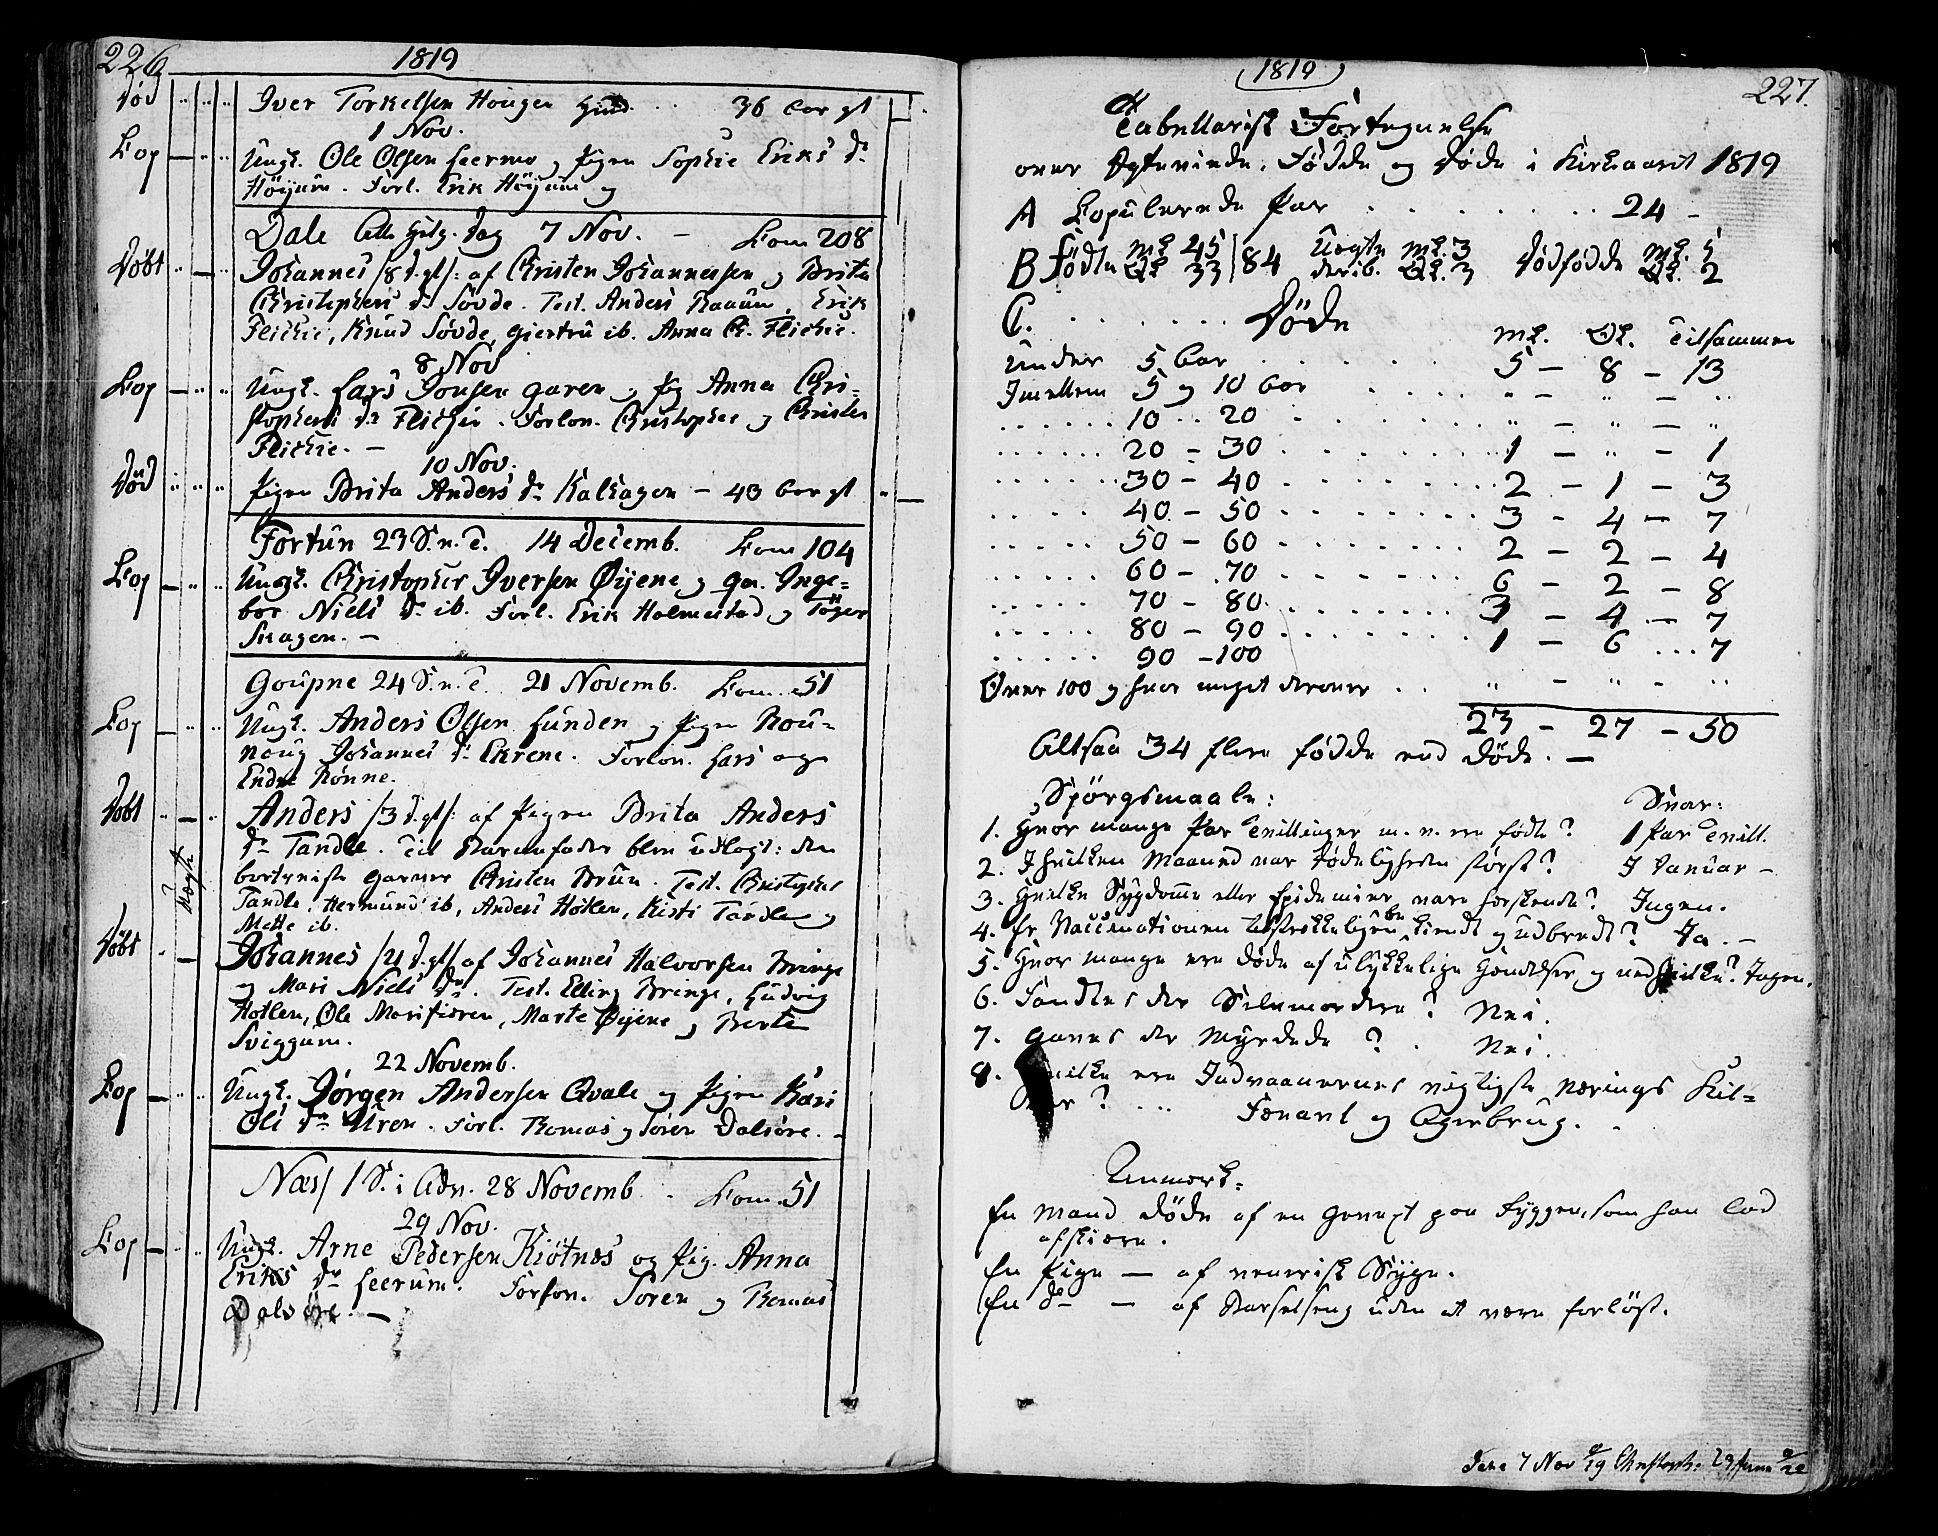 226 1819
Död Iver Torkelsen Hougen Huusd. 36 Aar gl
1 Nov.
Cop Ungk. Ole Olsen Leermo og Pigen Sophie Eriks Dr
Höyum. Forl. Erik Höyum og
Dale Alle Helg. Dag 7 Nov. - Com 208
Döbt Johannes /8 d. gl/: af Christen Johannessen og Brita
Christophers Dr Sövde. Test. Anders Raaum, Erik
Flickie, Knud Sövde, Giertru ib. Anna Ch. Flickie.
8 Nov
Cop Ungk. Lars Jonsen Garen og Pig Anna Chri=
stophers Dr Flickie. Forlov. Christopher og Christen
Flickie. -
10 Nov.
Död Pigen Brita Anders Dr Kalhagen - 43 Aar gl
Fortun 23 S. n. T. 14 Decemb. Com 104
Cop Ungk. Christopher Iversen Øyene og Qv. Inge=
bor Niels Dr ib. Forl. Erik Holmestad og Töger
Skagen. -
Goupne 24 S. n. T. 21 Novemb. Com. 51
Cop Ungk. Anders Olsen Lunden og Pigen Rou=
noug Johannes Dr Ekrene. Forlov. Lars og
Endre Rönne.
Döbt Anders /3 d. gl/: af Pigen Brita Anders
Dr Tandle. Til Barnefader blev udlagt: den
bortreiste Garver Christen Bruun. Test. Christopher
Tandle, Hermund ib, Anders Hotlen, Kisti Tandle og
Mette ib.
Uægte
Döbt Johannes /21 d. gl/ af Johannes Halvorsen Bringe
og Mari Niels Dr. Test. Elling Bringe, Ludvig
Hotlen, Ole Marifiæren, Marte Øyene og Berte
Sviggum.
22 Novemb.
Cop Ungk. Jörgen Andersen Qvale og Pigen Kari
Ols Dr Uren. Forl. Thomas og Soren Dalsöre. -
Næs/ 1 S. i Adv. 28 Novemb. Com. 51
29 Nov.
Cop Ungk. Arne Pedersen Kiötnæs og Pig. Anna
Eriks Dr Leerum. Forlov. Soren og Thomas
Dalsöre. -
1819 227.
Tabellarisk Fortegnelse
over Ægteviede, Födde og Döde i Kirkeaaret 1819
A Copulerede Par . . . . . . . 24 -
B Födte Mk. 45 | 84 Uægte Mk. 3 Dödfödde Mk. 5
Qk 33 derib. Qk. 3 Qk. 2
C. . . . . . . Döde
Mk. Qk. Tilsammen
Under 5 Aar . . . . . 5 - 8 - 13
Imellem 5 og 10 Aar . . . . " - " - "
. . . . . . 10 - 20 . . . . . . " - " - "
. . . . . . 20 - 30 . . . . . . 1 - " - 1
. . . . . . 30 - 40 . . . . . . 2 - 1 - 3
. . . . . . 40 - 50 . . . . . . 3 - 4 - 7
. . . . . . 50 - 60 . . . . . . 2 - 2 - 4
. . . . . . 60 - 70 . . . . . . 6 - 2 - 8
. . . . . . 70 - 80 . . . . . . 3 - 4 - 7
. . . . . . 80 - 90 . . . . . . 1 - 6 ... 7
. . . . . . 90 - 100
Over 100 og hvor meget derover . . " - " - "
23 - 27 - 50
Altsaa 34 flere födde end döde. -
Spörgsmaale: Svar:
1. Hvor mange Par Tvillinger m. v. ere födte? 1 Par Tvill.
2. I hvilken Maaned var Dödeligheden störst? I Januar -
3. Hvilke Sygdomme eller Epidemier vare herskende? Ingen.
4. Er Vaccinationen tilstrækkeligen bekiendt og udbredt? Ja. -
5. Hvor mange ere döde af ulykkelige Hændelser, og ved hvilke? Ingen.
6. Fandtes der Selvmordere? Nei.
7. Gaves der Myrdede? . Nei.
8. Hvilke ere Indvaanernes vigtigste Nærings Kil=
der? .. Fæeavl og Agerbrug. .
Anmærk.
En Mand döde af en Gevext paa Ryggen, som han lod
afskiære.
En Pige - af venerisk Syge.
En do - af Barselseng uden at være forlöst.
Dale 7 Nov